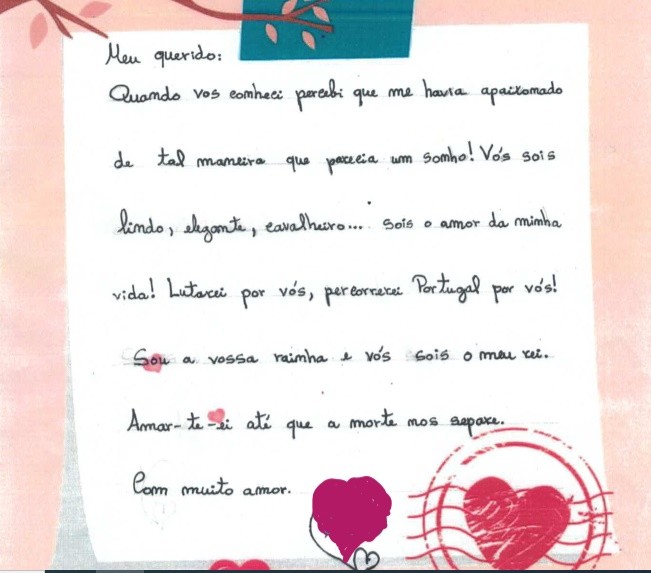 Meu querido:
Quando vos conheci percebi que me havia apaixonado
de tal maneira que parecia um sonho! Vós sois
lindo, elegante, cavalheiro... Sois o amor da minha
vida! Lutarei por vós, percorrerei Portugal por vós!
Sou a vossa rainha e vós sois o meu rei.
Amar-te-ei até que a morte nos separe.
Com muito amor.